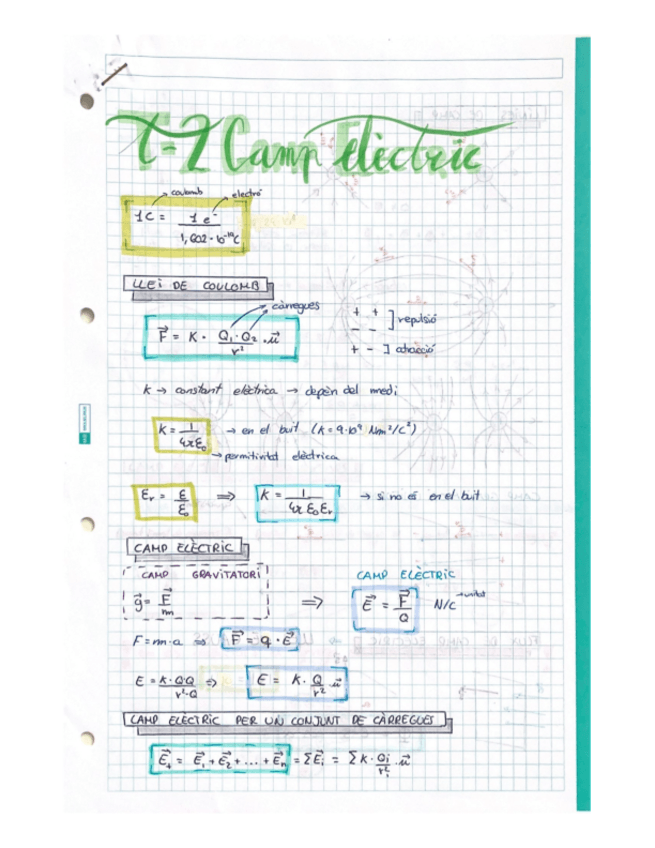 T-2 Camp Elèctric
coulomb electró
1C = 1 e⁻ / 1,602 · 10⁻¹⁹C
LLEI DE COULOMB
càrregues
F⃗ = K · Q₁·Q₂ / r² · u⃗
+ + - - ] repulsió
+ - ] atracció
K → constant elèctrica → depèn del medi
K = 1 / 4πε₀ → en el buit (K = 9·10⁹ Nm²/C²)
→ permitivitat elèctrica
Er = E / E₀ ⇒ K = 1 / 4π E₀ Er → si no és en el buit
CAMP ELÈCTRIC
CAMP GRAVITATORI CAMP ELÈCTRIC
g⃗ = F⃗ / m ⇒ E⃗ = F⃗ / Q N/C → unitat
F = m·a ⇒ F⃗ = q · E⃗
E = K·Q·Q / r²·Q ⇒ E = K · Q / r² · u⃗
CAMP ELÈCTRIC PER UN CONJUNT DE CÀRREGUES
E⃗t = E⃗₁ + E⃗₂ + ... + E⃗n = ΣE⃗i = Σ K · Qi / ri² · u⃗